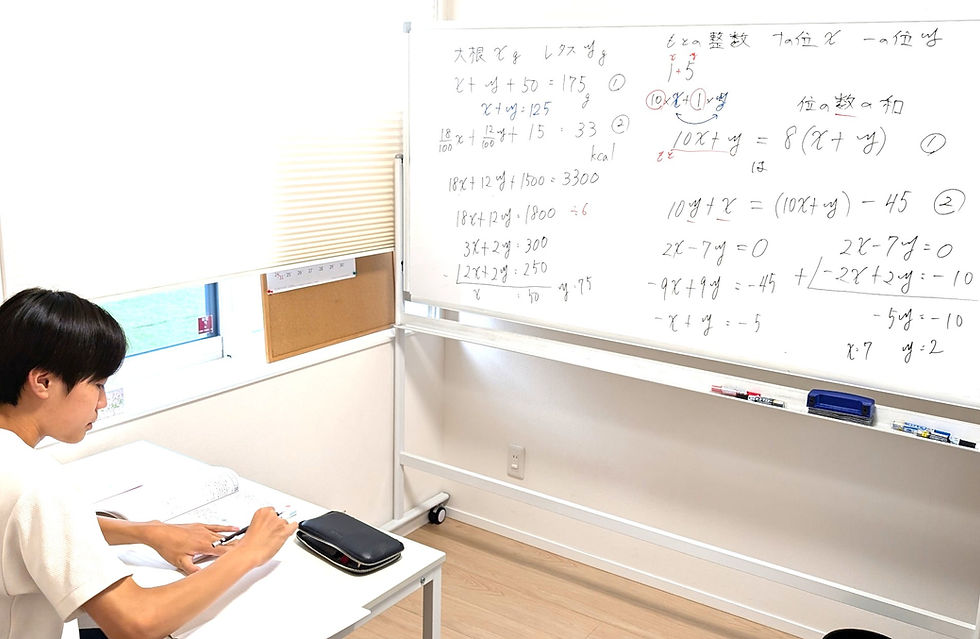 大根 xg レタス yg
x + y + 50 = 175 ①
g
x+y=125
18/100 x + 12/100 y + 15 = 33 ②
kcal
18x+12y+1500=3300
18x+12y=1800 ÷6
3x+2y=300
- 2x+2y=250
x =50 y=75
もとの整数 十の位 x 一の位 y
x y
1+5
10×x+1×y
位の数の和
10x+y = 8(x+y) ①
は
10y+x = (10x+y) - 45 ②
2x-7y=0
-9x+9y=-45
-x+y=-5
2x-7y=0
+ -2x+2y=-10
-5y=-10
x=7 y=2
24 25 26 27 28 29 30
31